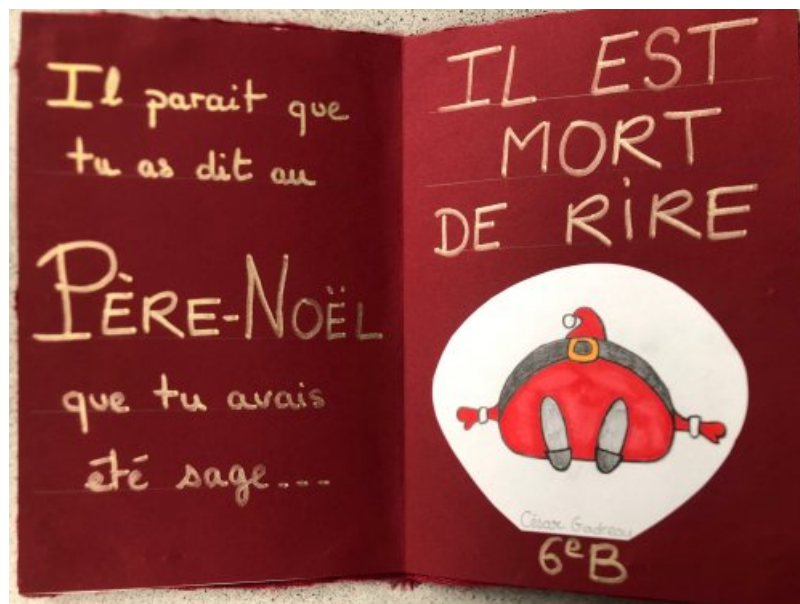 Il parait que
tu as dit au
PÈRE-NOËL
que tu avais
été sage...
IL EST
MORT
DE RiRE
César Gadreau
6e B